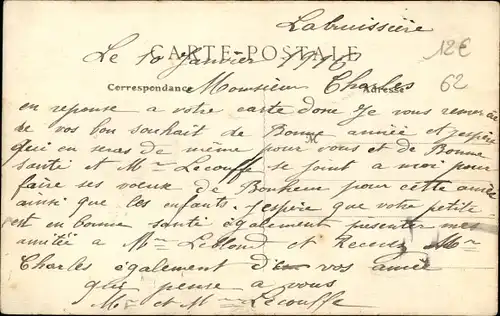 Labuissière
12€
Le 10 Janvier 1916
CARTE-POSTALE
62
Correspondance
Adresse
Monsieur Charles
en reponse a votre carte donc Je vous remercie
de vos bon souhait de Bonne année et J'espère
qui en seras de même pour vous et de Bonne
santé et Mme Lecouffe se joint a moi pour
faire ses voeux de Bonheur pour cette année
ainsi que les enfants. J'espère que votre petite
est en bonne santé également presenter mes
amitiée a Mme Leblond et Recevez Mr
Charles également de vos amie
qui pense a vous
Mr et Mme Lecouffe